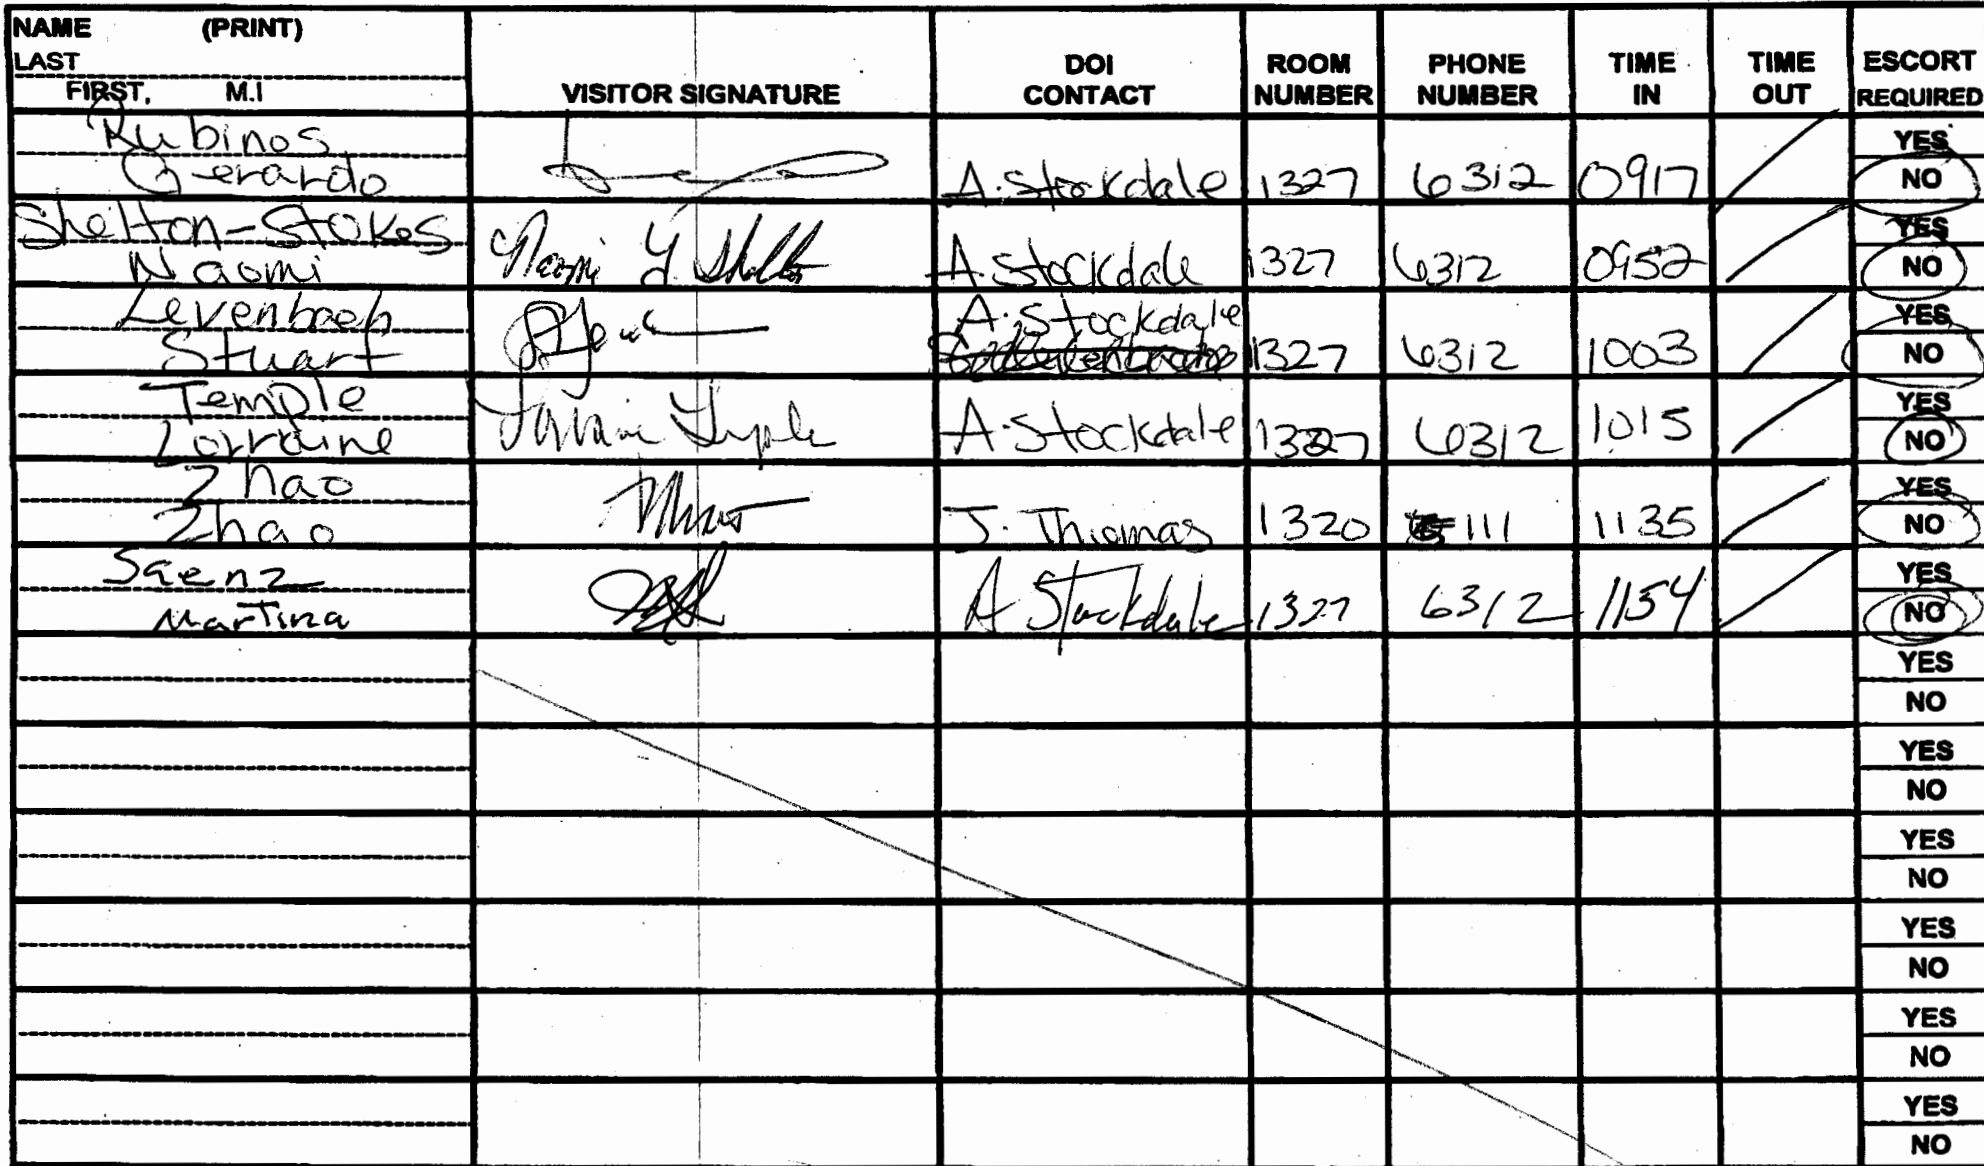 NAME (PRINT)
LAST
FIRST, M.I
VISITOR SIGNATURE
DOI CONTACT
ROOM NUMBER
PHONE NUMBER
TIME IN
TIME OUT
ESCORT REQUIRED
Rubinos
Gerardo
A. Stockdale 1327 6312 0917
YES
NO
Shelton-Stokes
Naomi
A. Stockdale 1327 6312 0952
YES
NO
Levenbach
Stuart
A. Stockdale
1327 6312 1003
YES
NO
Temple
Lorraine
Lorraine Temple A. Stockdale 1327 6312 1015
YES
NO
Zhao
Zhao
J. Thomas 1320 111 1135
YES
NO
Saenz
Martina
A Stockdale 1327 6312 1154
YES
NO
YES
NO
YES
NO
YES
NO
YES
NO
YES
NO
YES
NO